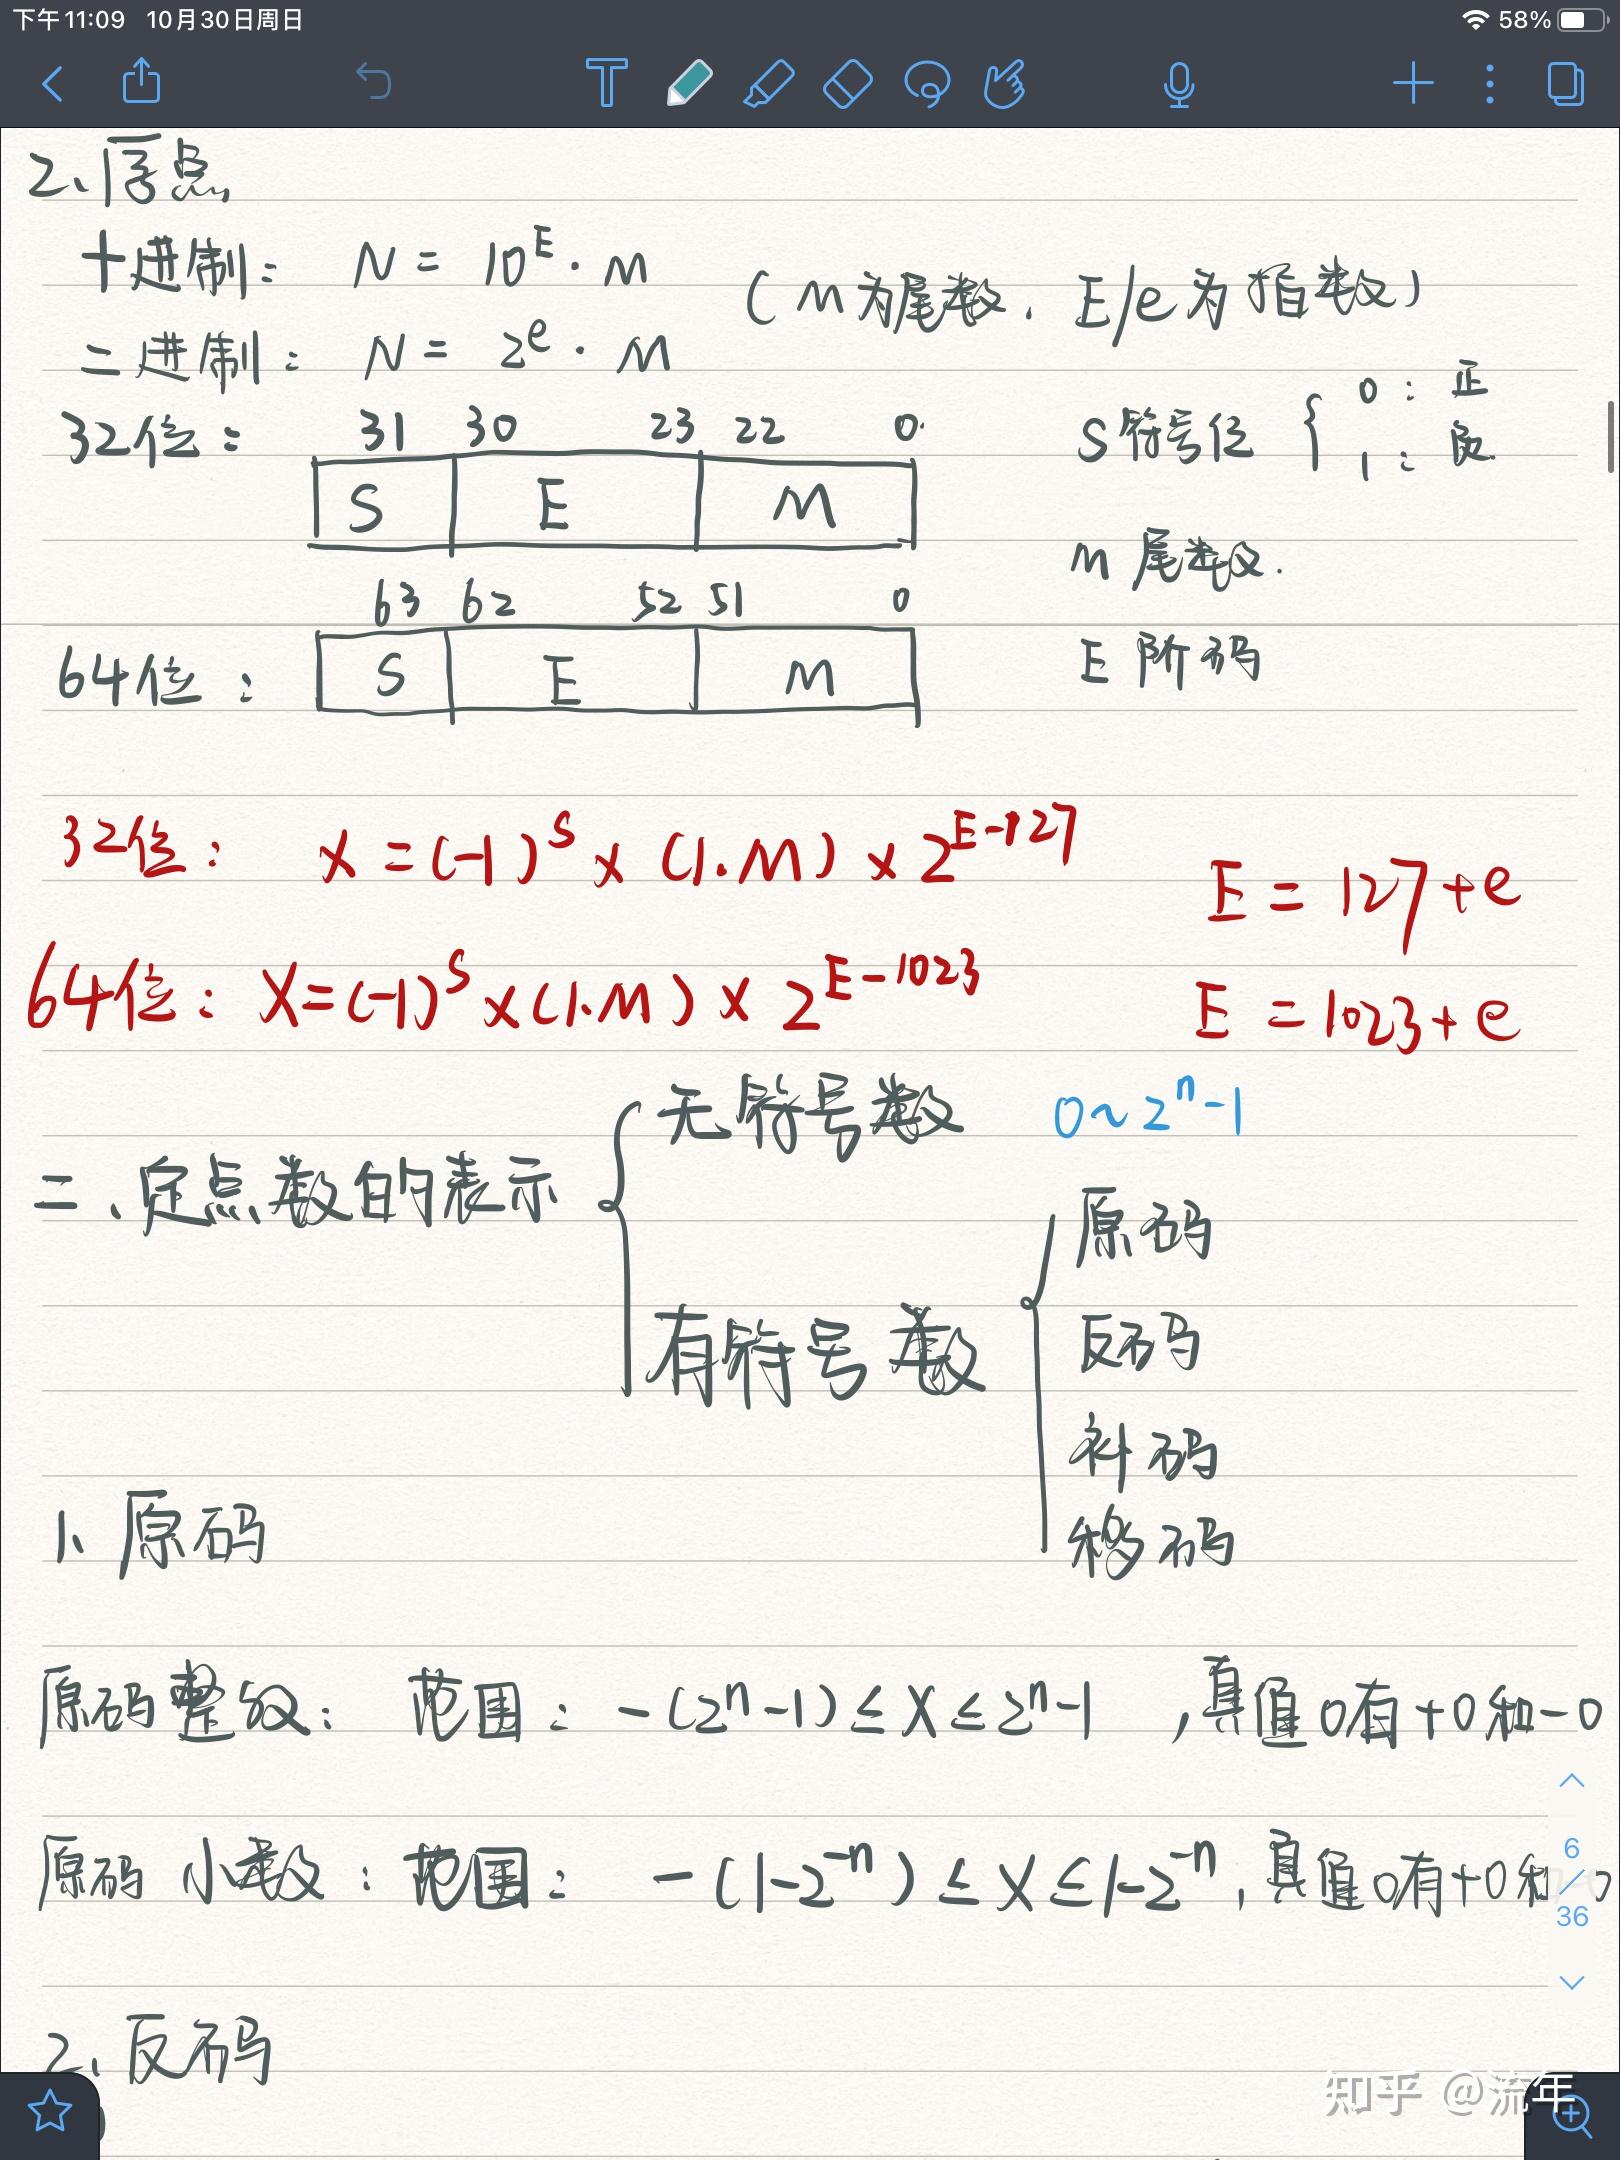 下午11:09 10月30日周日
58%
2、浮点
十进制: N = 10^E · M
(M为尾数. E/e为指数)
二进制: N = 2^e · M
32位: 31 30 23 22 0
S符号位 { 0: 正
1: 负
S E M
M 尾数.
63 62 52 51 0
64位: S E M
E 阶码
32位: X = (-1)^S × (1.M) × 2^{E-127}
E = 127+e
64位: X=(-1)^S ×(1.M) × 2^{E-1023}
E = 1023+e
无符号数 0~2^n-1
二、定点数的表示
原码
有符号数
反码
补码
1、原码
移码
原码整数: 范围: -(2^n-1)≤X≤2^n-1 ,真值0有+0和-0
原码小数: 范围: -(1-2^{-n})≤X≤1-2^{-n},真值0有+0和-0
6/36
2、反码
知乎 @流年